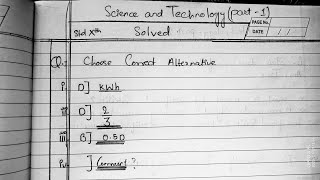 Science and Technology (part - 1)
PAGE No.
DATE
Std Xth Solved
Q.1 Choose Correct Alternative
i. D] kWh
ii. D] 2/3
iii. B] 0.5D
iv. ] Comment ?